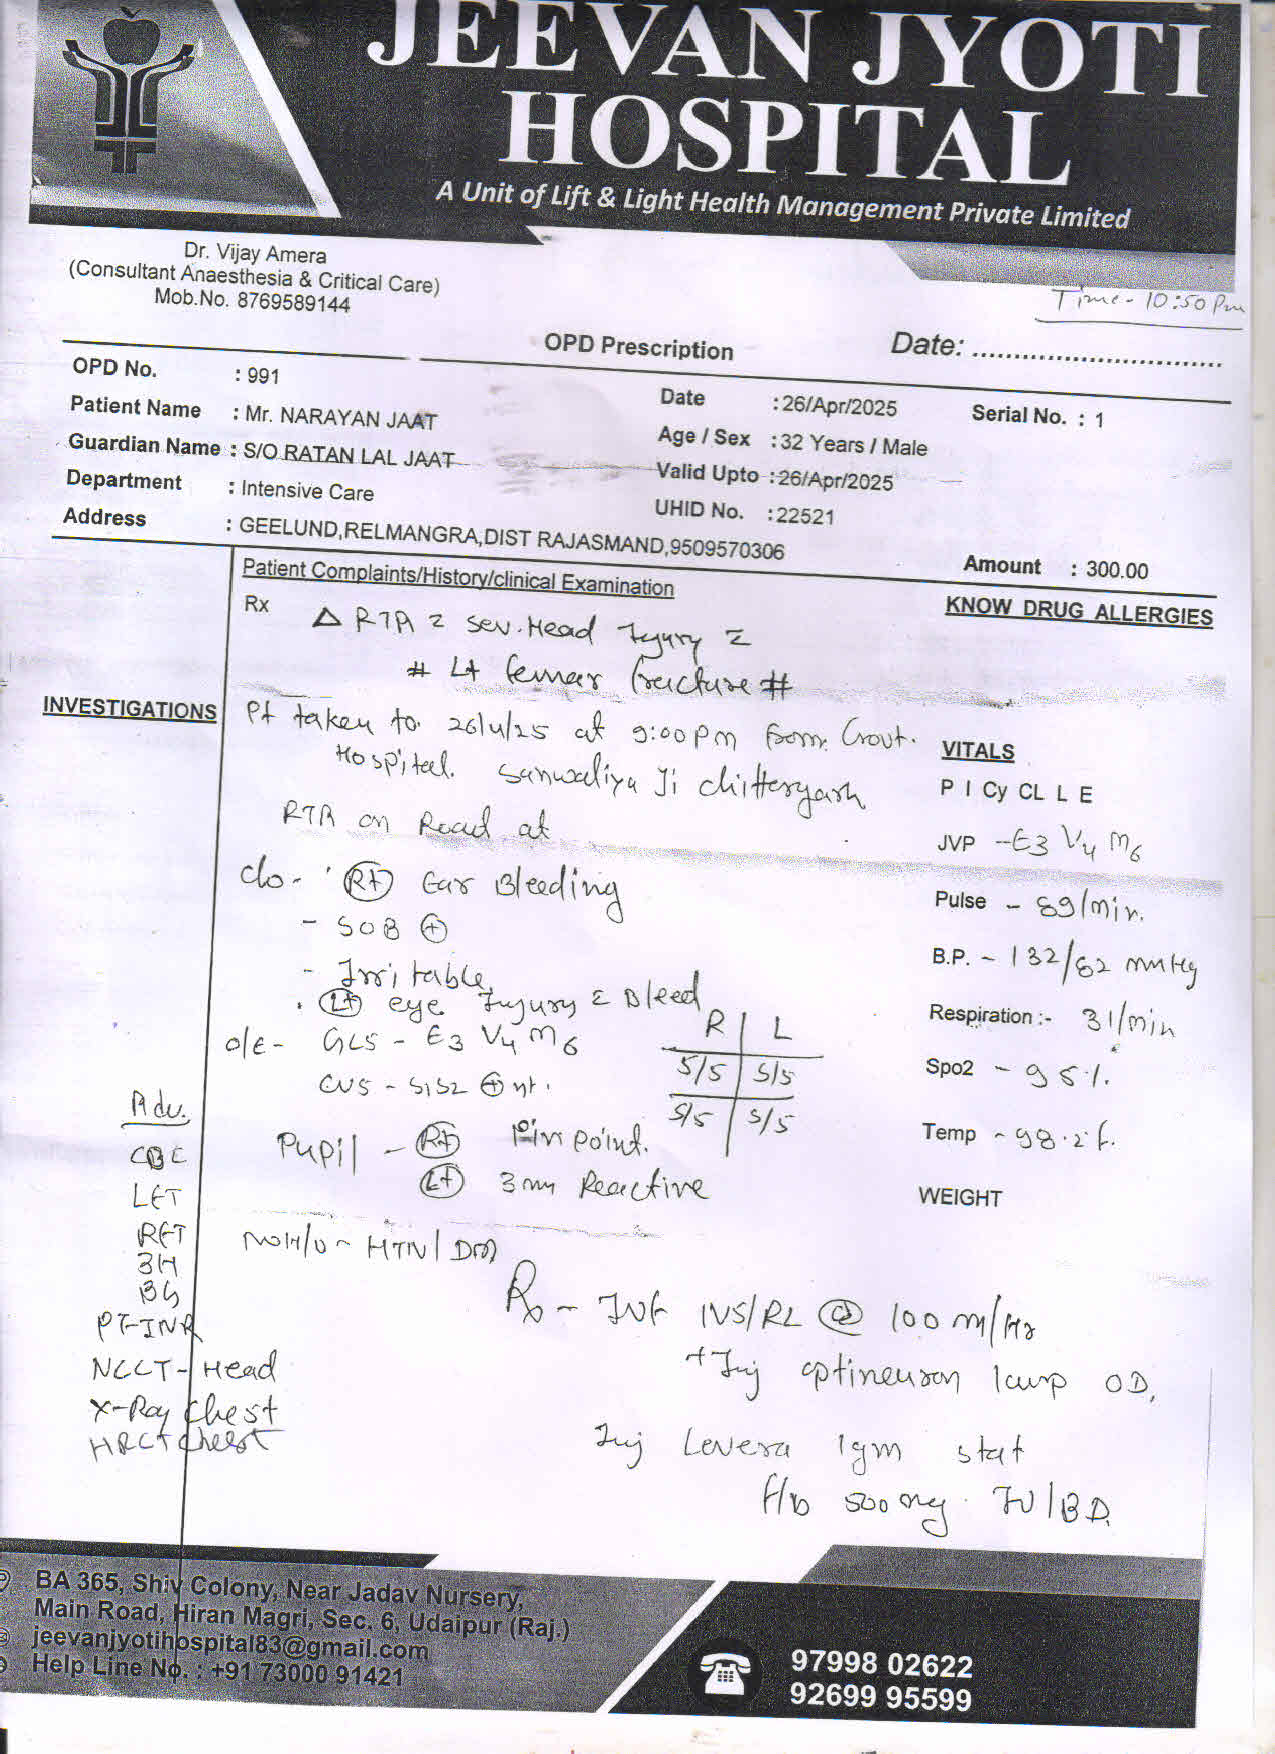 JEEVAN JYOTI
HOSPITAL
A Unit of Lift & Light Health Management Private Limited
Dr. Vijay Amera
(Consultant Anaesthesia & Critical Care)
Mob.No. 8769589144
Time - 10:50 Pm
OPD Prescription
Date: ..............................
OPD No. : 991
Date : 26/Apr/2025
Serial No. : 1
Patient Name : Mr. NARAYAN JAAT
Age / Sex : 32 Years / Male
Guardian Name : S/O RATAN LAL JAAT
Valid Upto : 26/Apr/2025
Department : Intensive Care
UHID No. : 22521
Address : GEELUND,RELMANGRA,DIST RAJASMAND,9509570306
Amount : 300.00
Patient Complaints/History/clinical Examination
KNOW DRUG ALLERGIES
Rx
Δ RTA c sev. Head Injury c
# Lt femar fracture #
INVESTIGATIONS
Pt taken to 26/4/25 at 9:00 pm from Govt.
Hospital. Sanwaliya Ji chittorgarh
RTA on Road at
VITALS
P I Cy CL L E
JVP - E3 V4 M6
c/o - Rt Ear Bleeding
- SOB +
- Irritable
. Lt eye Injury c Bleed
Pulse - 89/min.
B.P. - 132/82 mmHg
Respiration :- 31/min
Spo2 - 95 %
Temp - 98.2 f.
WEIGHT
o/e - GCS - E3 V4 M6
CVS - S1S2 + nt.
R | L
5/5 | 5/5
5/5 | 5/5
Pupil - Rt Pin point.
Lt 3 mm Reactive
NO H/O - HTN/DM
Adv.
CBC
LFT
RFT
BH
BG
PT-INR
NCCT - Head
X-Ray Chest
HRCT Chest
Rx - IVF NS/RL @ 100 ml/Hr
+ Inj optineuron 1 amp OD,
Inj Levera 1gm stat
f/b 500 mg. IV/BD.
BA 365, Shiv Colony, Near Jadav Nursery,
Main Road, Hiran Magri, Sec. 6, Udaipur (Raj.)
jeevanjyotihospital83@gmail.com
Help Line No. : +91 73000 91421
97998 02622
92699 95599